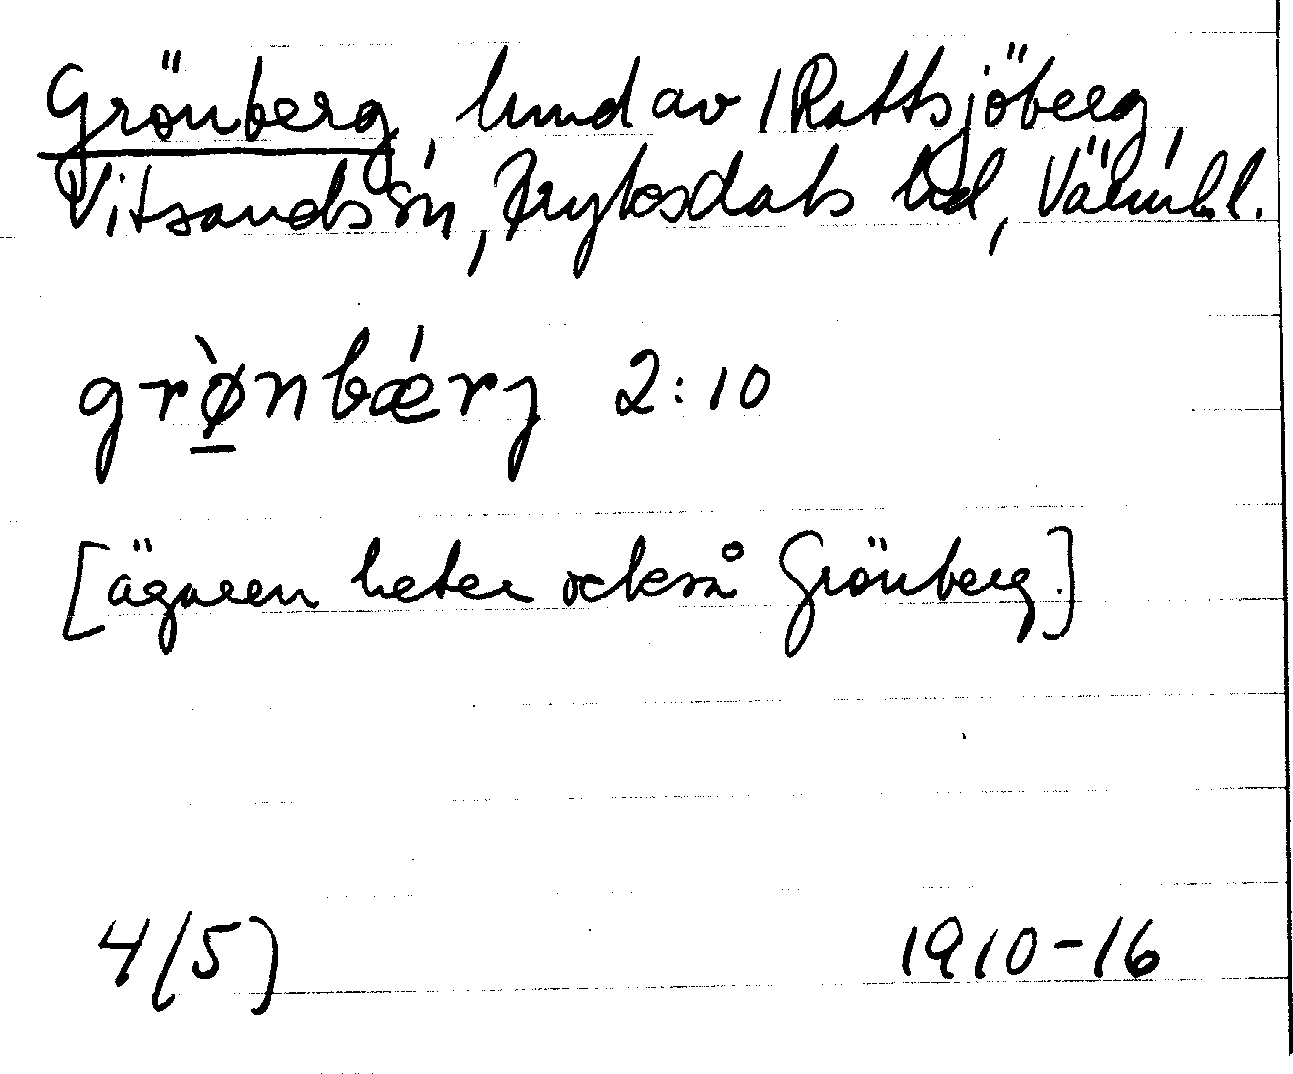 Grönberg, hmd av 1 Rattsjöberg,
Vitsands sn, Fryksdals hd, Värml.
grø̲̀nbǽrj 2:10
[ägaren heter också Grönberg.]
4/5) 1910-16